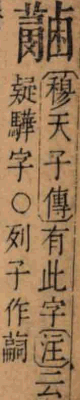 穆天子傳有此字注云
疑驊字○列子作